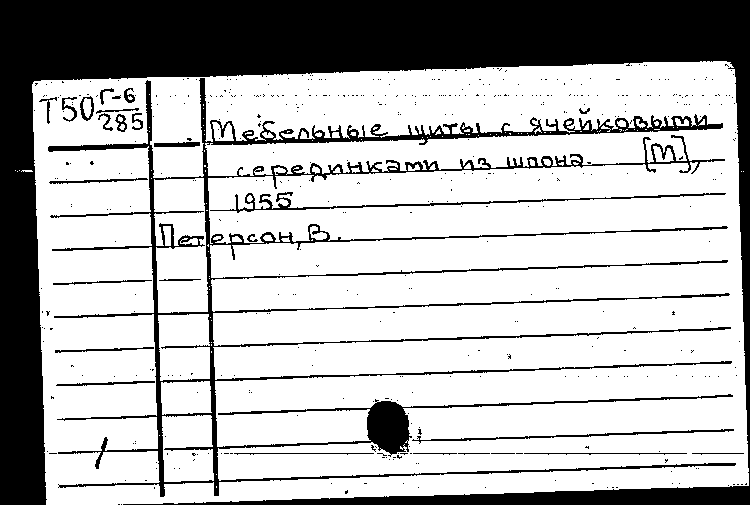 Т50 Г-6
285
Мебельные щиты с ячейковыми
серединками из шпона. [М.],
1955
Петерсон, В.